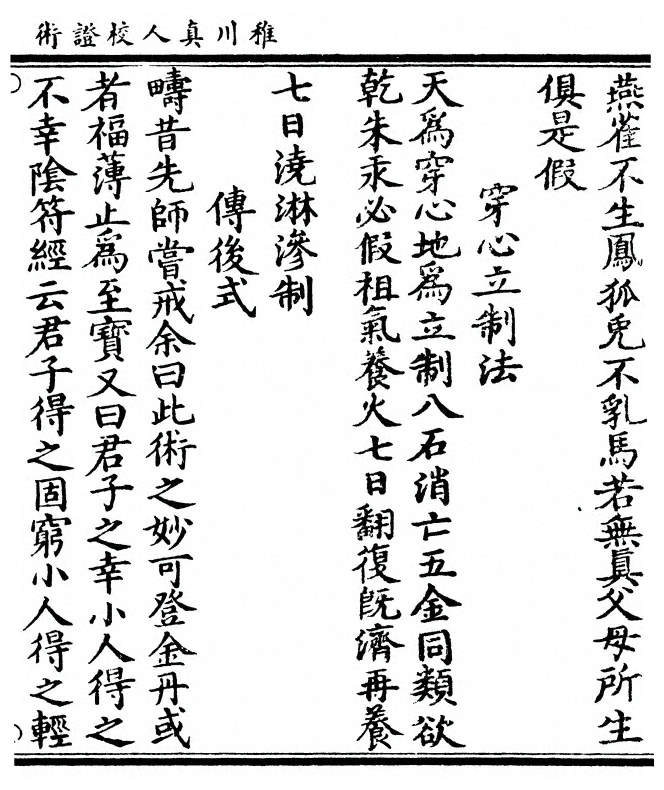 稚川真人校證術
燕雀不生鳳狐兎不乳馬若無眞父母所生
俱是假
穿心立制法
天爲穿心地爲立制八石消亡五金同類欲
乾朱汞必假祖氣養火七日翻復既濟再養
七日澆淋滲制
傳後式
疇昔先師嘗戒余曰此術之妙可登金丹或
者福薄止爲至寶又曰君子之幸小人得之
不幸陰符經云君子得之固窮小人得之輕